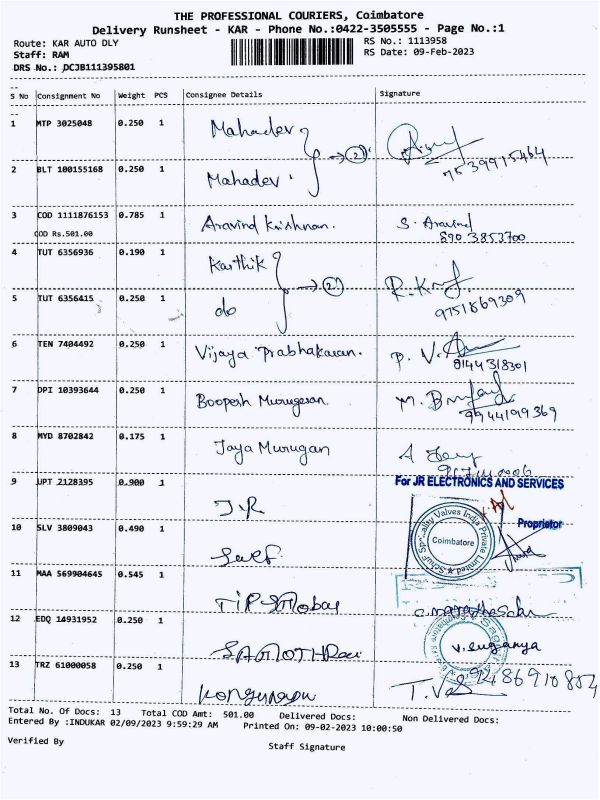 THE PROFESSIONAL COURIERS, Coimbatore
Delivery Runsheet - KAR - Phone No.:0422-3505555 - Page No.:1
Route: KAR AUTO DLY
RS No.: 1113958
Staff: RAM
RS Date: 09-Feb-2023
DRS No.: DCJB111395801
S No Consignment No Weight PCS Consignee Details Signature
1 MTP 3025048 0.250 1 Mahadev
→(2) 7539915464
2 BLT 100155168 0.250 1 Mahadev
3 COD 1111876153 0.785 1 Aravind Krishnan. S. Aravind
COD Rs.501.00 8903853700
4 TUT 6356936 0.190 1 Karthik
→(2) 9751869309
5 TUT 6356415 0.250 1 do
6 TEN 7404492 0.250 1 Vijaya Prabhakaran. P. V.
8144318301
7 DPI 10393644 0.250 1 Boopesh Murugesan. M.
9944199369
8 MYD 8702842 0.175 1 Jaya Murugan
9 UPT 2128395 0.900 1 J.R
For JR ELECTRONICS AND SERVICES
Proprietor
10 SLV 3809043 0.490 1
Valves India Private Limited
Coimbatore
11 MAA 569904645 0.545 1
12 EDQ 14931952 0.250 1
V. Suganya
13 TRZ 61000058 0.250 1
9486910804
Total No. Of Docs: 13 Total COD Amt: 501.00 Delivered Docs: Non Delivered Docs:
Entered By :INDUKAR 02/09/2023 9:59:29 AM Printed On: 09-02-2023 10:00:50
Verified By
Staff Signature